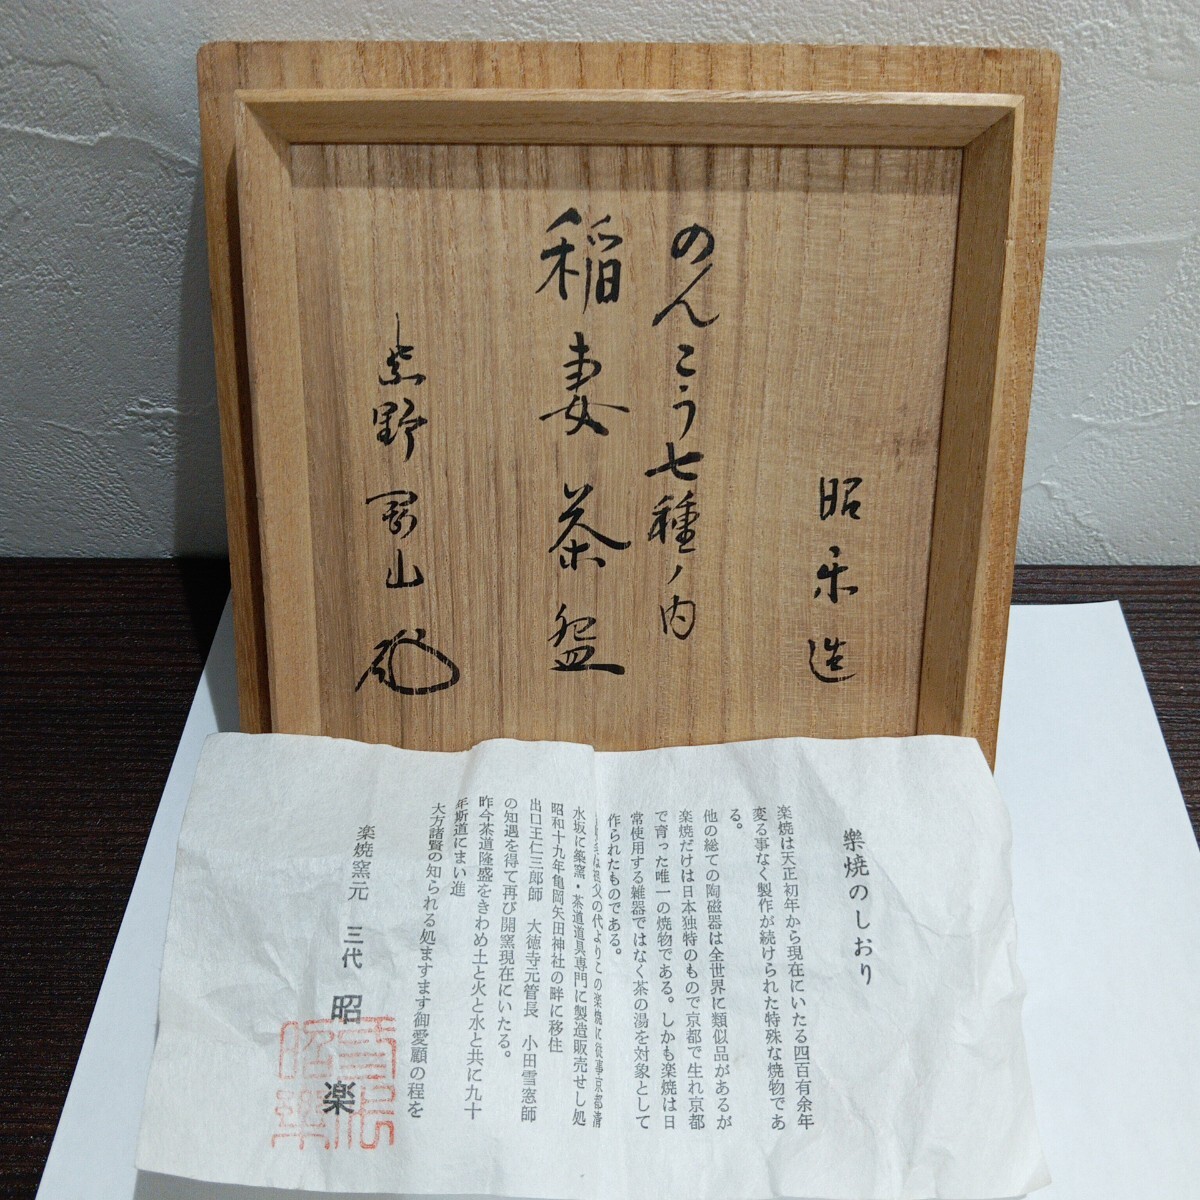 昭楽造
のんこう七種ノ内
稲妻茶盌
紫野
山
樂焼のしおり
楽焼は天正初年から現在にいたる四百有余年
変る事なく製作が続けられた特殊な焼物であ
る。
他の総ての陶磁器は全世界に類似品があるが
楽焼だけは日本独特のもので京都で生れ京都
で育った唯一の焼物である。しかも楽焼は日
常使用する雑器ではなく茶の湯を対象として
作られたものである。
祖父の代よりこの楽焼に従事京都清
水坂に築窯・茶道道具専門に製造販売せし処
昭和十九年亀岡矢田神社の畔に移住
出口王仁三郎師　大徳寺元管長　小田雪窓師
の知遇を得て再び開窯現在にいたる。
昨今茶道隆盛をきわめ土と火と水と共に九十
年斯道にまい進
大方諸賢の知られる処ますます御愛顧の程を
楽焼窯元　三代　昭楽